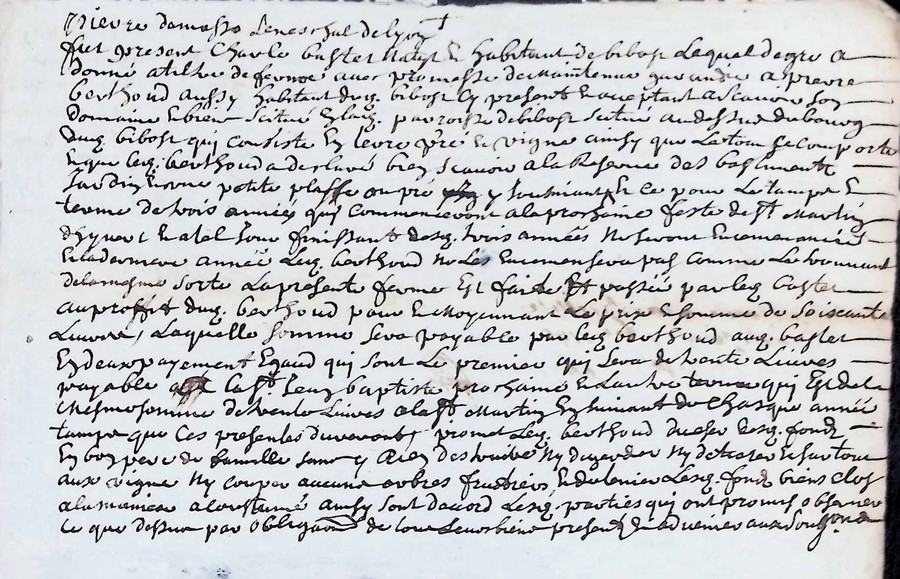 fut present Charle baster Natif & habitant de bibost Lequel de gre a
donné a tiltre de ferme avec promesse de maintenue que andre a pierre
berthoud aussy habitant dudq. bibost Cy present & acceptant a scavoir son
Domaine & bien scitué Enlad. parroisse de bibost scitué au dessus du bourg
dudq bibost qui Consiste En terre pré & vigne ainsy que Le tout se Comporte
& que leq. berthoud a declaré bien scavoir a la Reserve des bastiments
Jardin & une petite plasse ou pré y Joignant Et Ce pour Le temps &
terme de trois années quy Commenceront a la prochaine feste de st Martin
d'hyvert & a tel Jour finissant desq. trois années
& la derniere année Leq. berthoud ne Les Comme Le trouvant
de la mesme sorte La presente ferme Est faite Et passée par leq baster
au proffit dudq. berthoud pour & moyennant Le prix & somme de soixante
Livres, Laquelle somme sera payable par leq berthoud auq. baster
En deux payement Egaud qui sont Le premier quy sera de trente Livres
payable a la st. Jean baptiste prochaine & L'autre terme quy Est de la
mesme somme de trente Livres a la st Martin En suivant de Chasque année
temps que Ces presentes dureront, promet Leq. berthoud d'user desq. fondz
En bon pere de famille sans y Rien destruire Ny degrader Ny deterorer & surtout
aux vigne Ny couper aucuns arbres fruitiers & de tenir Lesq. fondz biens clos
a la maniere accoustumé ainsy sont d'acord Lesq. parties qui ont promis observer
Ce que dessus par obligaon de tous Leurs biens presents & advenier